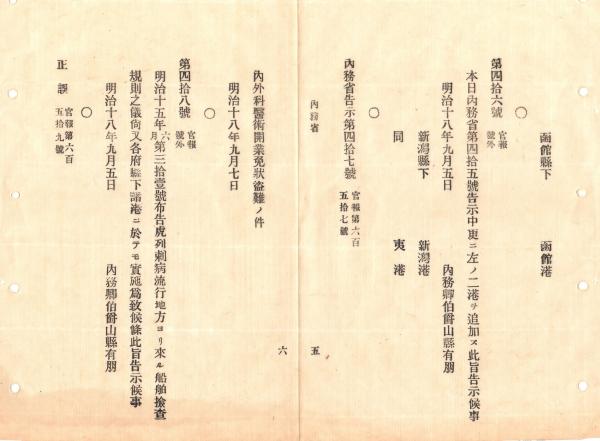 函館縣下 函館港
○
第四拾六號 官報號外
本日內務省第四拾五號告示中更ニ左ノ二港ヲ追加ス此旨告示候事
明治十八年九月五日 內務卿伯爵山縣有朋
新潟縣下 新潟港
同 夷港
○
內務省告示第四拾七號 官報第六百五拾七號
內務省
五
六
內外科醫術開業免狀盜難ノ件
明治十八年九月七日
○
第四拾八號 官報號外
明治十五年六月第三拾壹號布告虎列剌病流行地方ヨリ來ル船舶撿查
規則之儀尙又各府縣下諸港ニ於テモ實施爲致候條此旨告示候事
明治十八年九月五日 內務卿伯爵山縣有朋
○
正誤 官報第六百五拾九號